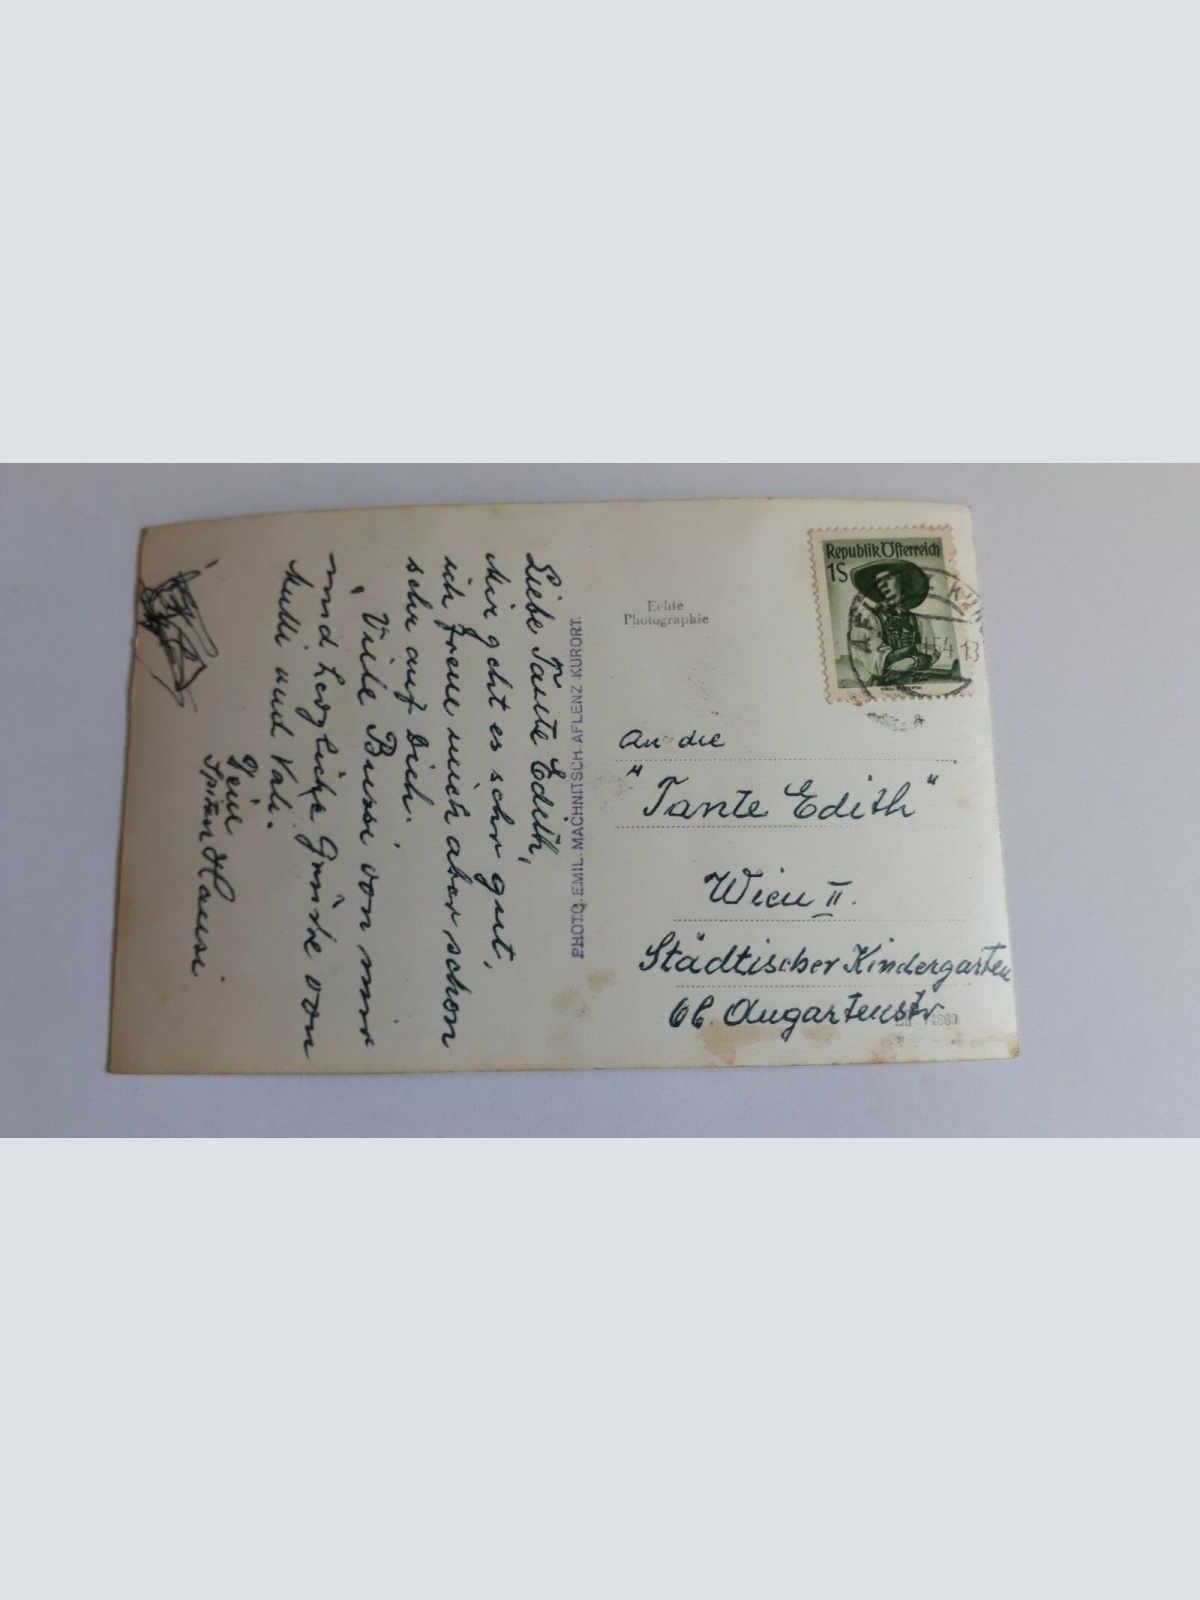 Liebe Tante Edith,
Mir geht es sehr gut,
ich freue mich aber schon
sehr auf Dich.
Viele Bussi von mir
und herzliche Grüße von
Mutti und Vati.
Dein
Hansi
PHOTO EMIL MACHNITSCH AFLENZ KURORT.
Echte
Photographie
Republik Österreich
1S
54 13
An die
"Tante Edith"
Wien II.
Städtischer Kindergarten
Augartenstr